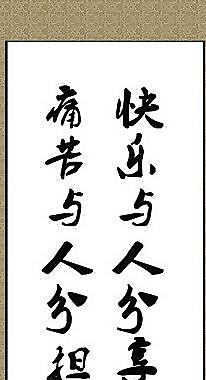 快乐与人分享
痛苦与人分担